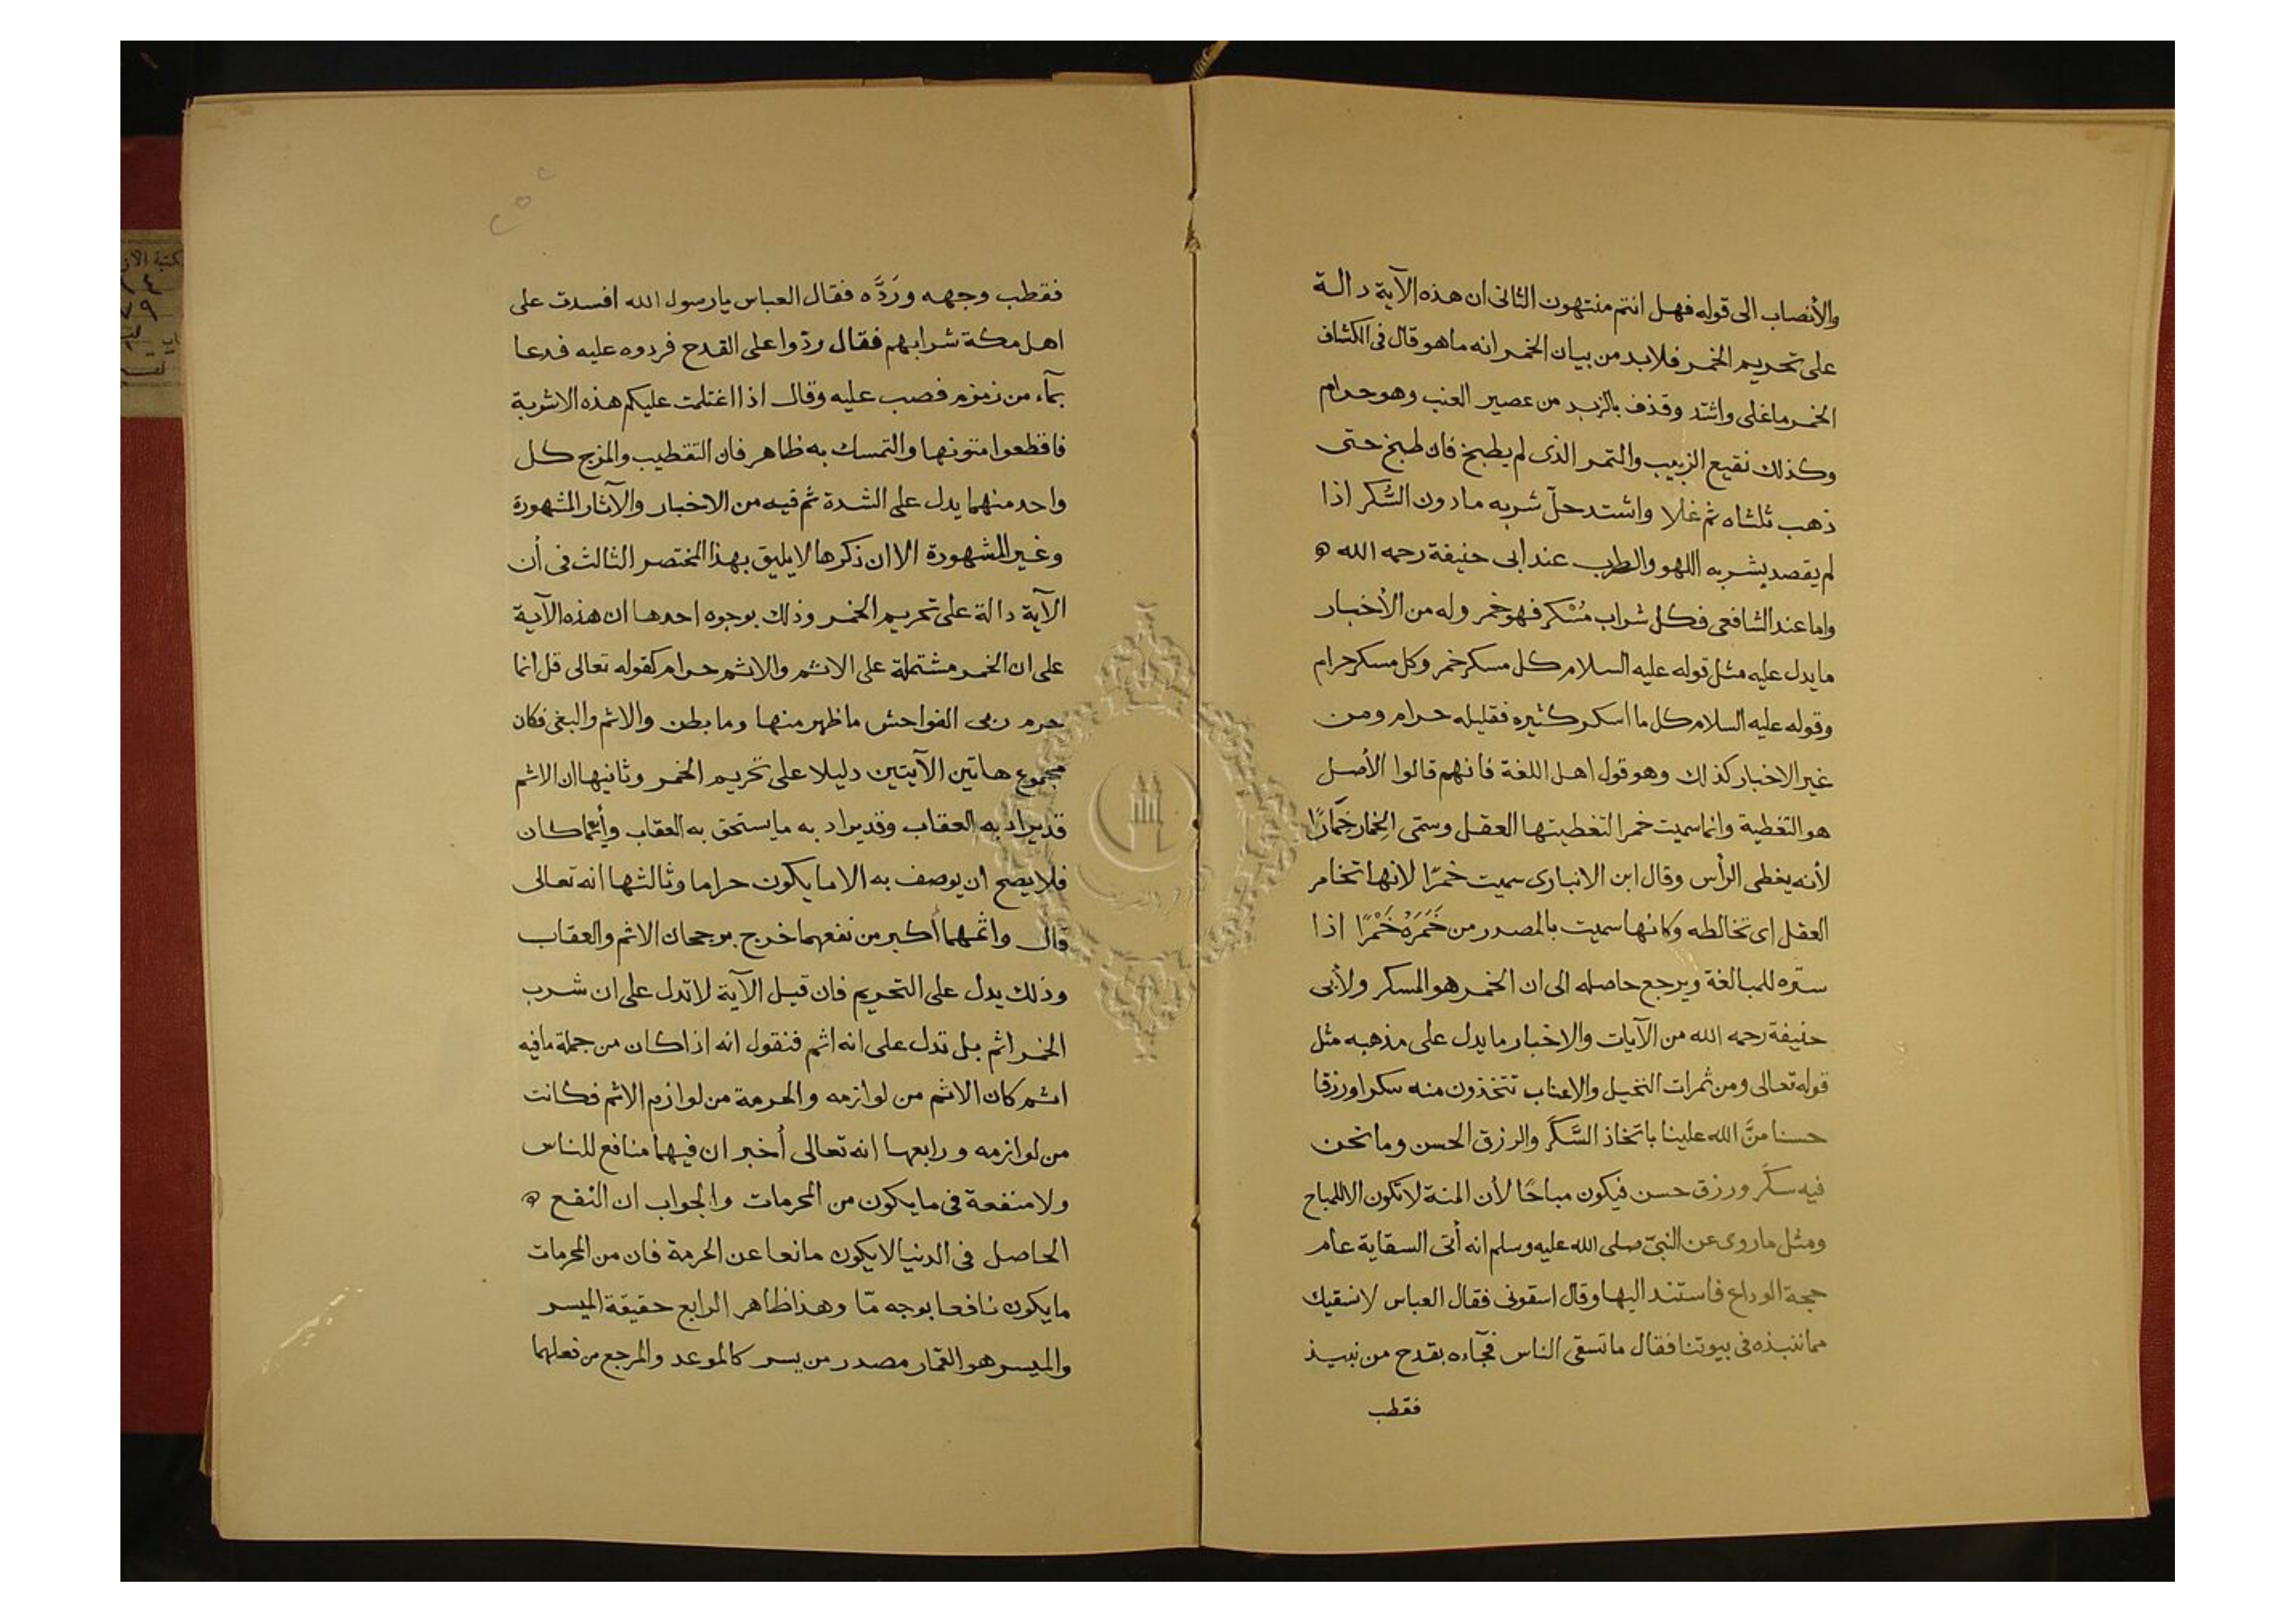 والأنصاب الى قوله فهل انتم منتهون الثانى ان هذه الآية دالة
على تحريم الخمر فلابد من بيان الخمر انه ماهو قال فى الكشاف
الخمر ماغلى واشتد وقذف بالزبد من عصير العنب وهو حرام
وكذلك نقيع الزبيب والتمر الذى لم يطبخ فان طبخ حتى
ذهب ثلثاه ثم غلا واشتد حلّ شربه مادون السُّكر اذا
لم يقصد بشربه اللهو والطرب عند ابى حنيفة رحمه الله
واما عند الشافعى فكل شراب مُسْكر فهو خمر وله من الأخبار
مايدل عليه مثل قوله عليه السلام كل مسكر خمر وكل مسكر حرام
وقوله عليه السلام كل ما اسكر كثيره فقليله حرام ومن
غير الاخبار كذلك وهو قول اهل اللغة فانهم قالوا الأصل
هو التغطية وانما سميت خمرا لتغطيتها العقل وسمّى الخِمار خِمَارًا
لأنه يغطى الرأس وقال ابن الانبارى سميت خمرًا لانها تخامر
العقل اى تخالطه وكانها سميت بالمصدر من خَمَرَهُ خَمْرًا اذا
ستره للمبالغة ويرجع حاصله الى ان الخمر هو المسكر ولأبى
حنيفة رحمه الله من الآيات والاخبار مايدل على مذهبه مثل
قوله تعالى ومن ثمرات النخيل والاعناب تتخذون منه سكرا ورزقا
حسنا منَّ الله علينا باتخاذ السَّكَر والرزق الحسن ومانحن
فيه سكَر ورزق حسن فيكون مباحًا لأن المنة لاتكون الا للمباح
ومثل ماروى عن النبىّ صلى الله عليه وسلم انه أتى السقاية عام
حجة الوداع فاستند اليها وقال اسقونى فقال العباس لانسقيك
مماننبذه فى بيوتنا فقال ماتسقى الناس فجآءه بقدح من نبيذ
فقطب
فقطب وجهه ورَدَّه فقال العباس يارسول الله افسدت على
اهل مكة شرابهم فقال ردّوا على القدح فردوه عليه فدعا
بمآء من زمزم فصب عليه وقال اذا اغتلمت عليكم هذه الاشربة
فاقطعوا متونها والتمسك به ظاهر فان التقطيب والمزج كل
واحد منهما يدل على الشدة ثم فيه من الاخبار والآثار المشهورة
وغير المشهورة الا ان ذكرها لايليق بهذا المختصر الثالث فى أن
الآية دالة على تحريم الخمر وذلك بوجوه احدها ان هذه الآية
على ان الخمر مشتملة على الاثم والاثم حرام كقوله تعالى قل انما
حرم ربى الفواحش ماظهر منها ومابطن والاثم والبغى فكان
مجموع هاتين الآيتين دليلا على تحريم الخمر وثانيها ان الاثم
قد يراد به العقاب وقد يراد به مايستحق به العقاب وأيّما كان
فلايصح ان يوصف به الا مايكون حراما وثالثها انه تعالى
قال واثمهما أكبر من نفعهما خرج برجحان الاثم والعقاب
وذلك يدل على التحريم فان قيل الآية لاتدل على ان شرب
الخمر اثم بل تدل على انه اثم فنقول انه اذا كان من جملة مافيه
اثم كان الاثم من لوازمه والحرمة من لوازم الاثم فكانت
من لوازمه ورابعها انه تعالى أخبر ان فيهما منافع للناس
ولا منفعة فى مايكون من المحرمات والجواب ان النفع
الحاصل فى الدنيا لايكون مانعا عن الحرمة فان من المحرمات
مايكون نافعا بوجه مّا وهذا ظاهر الرابع حقيقة الميسر
والميسر هو القمار مصدر من يسر كالموعد والمرجع من فعلهما